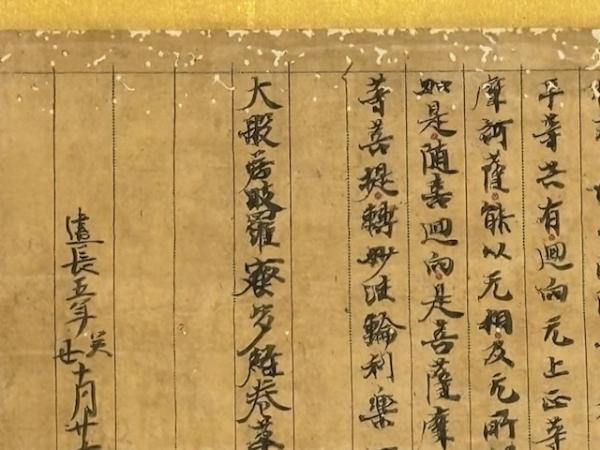 平等共有迴向无上正等
摩訶薩能以无相及无所
如是随喜迴向是菩薩摩
等菩提轉妙法輪利樂
大般若波羅蜜多經卷第
建長五年癸丑十月廿